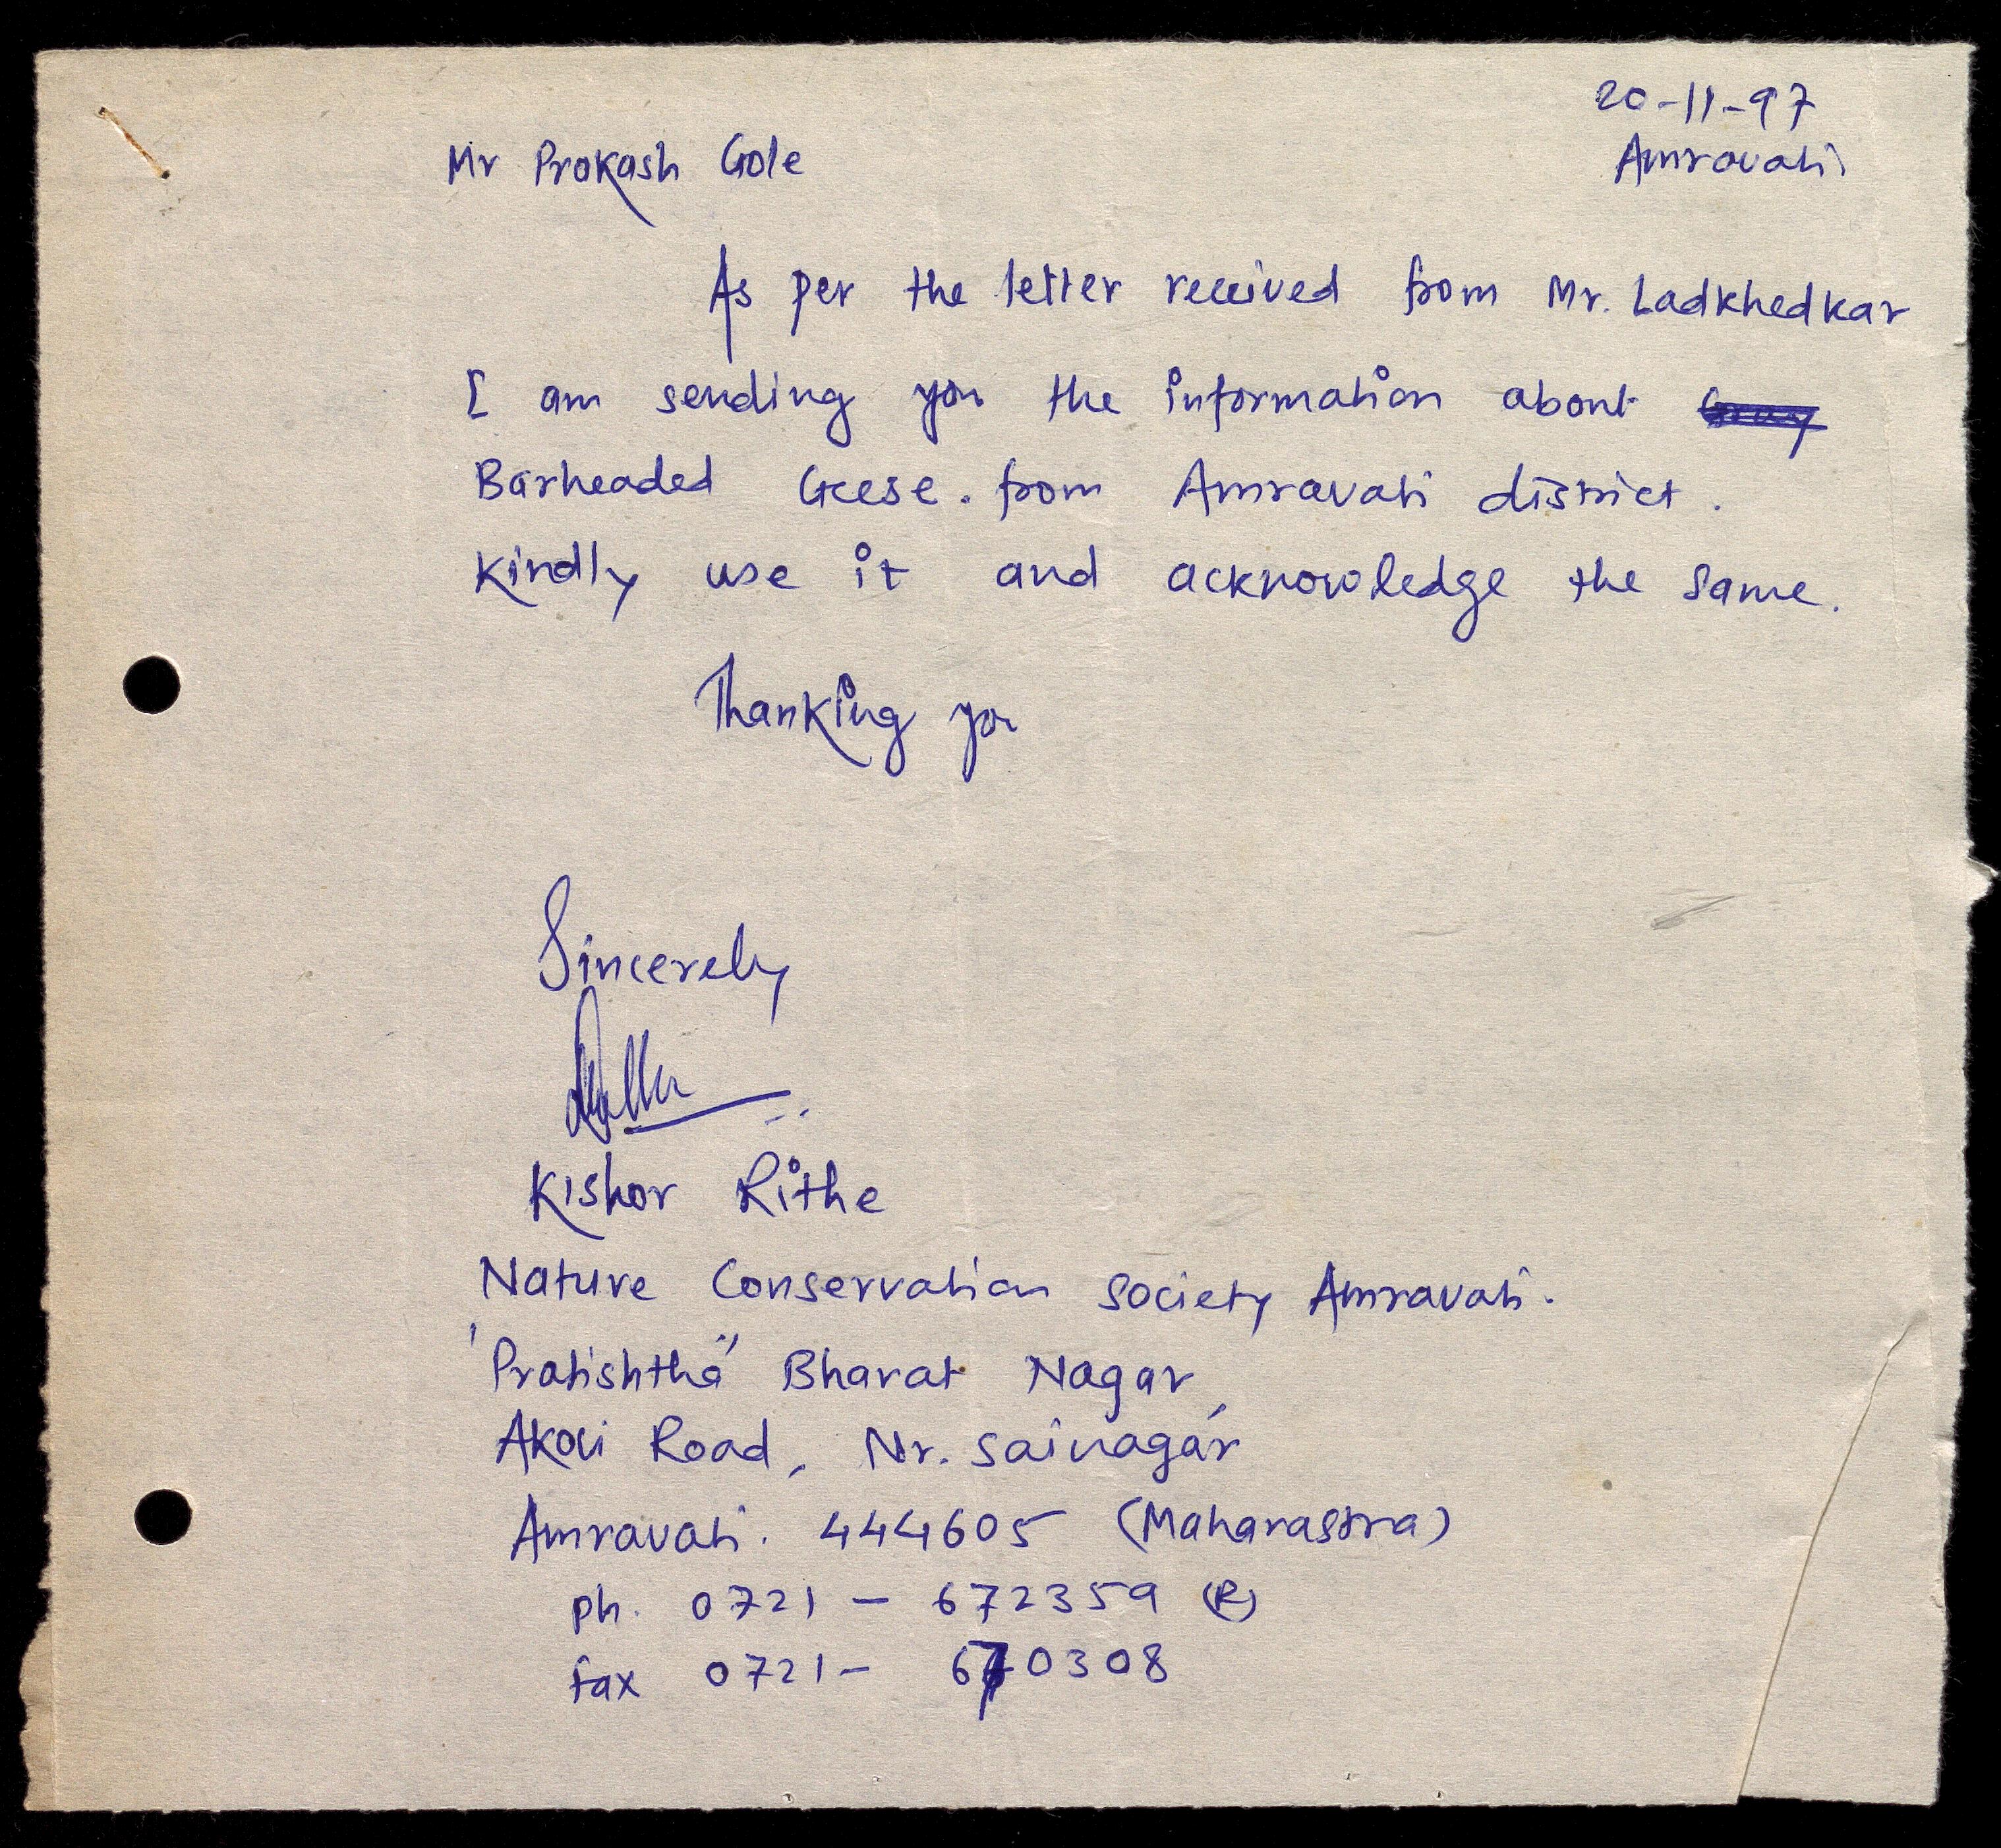 20-11-97
Amravati
Mr Prokash Gole
As per the letter received from Mr. Ladkhedkar
I am sending you the information about
Barheaded Geese. from Amravati district.
Kindly use it and acknowledge the same.
Thanking you
Sincerely
Kishor Rithe
Nature Conservation Society Amravati.
'Pratishtha" Bharat Nagar,
Akoli Road, Nr. Sainagar
Amravati. 444605 (Maharastra)
Ph. 0721 - 672359 (R)
fax 0721- 670308